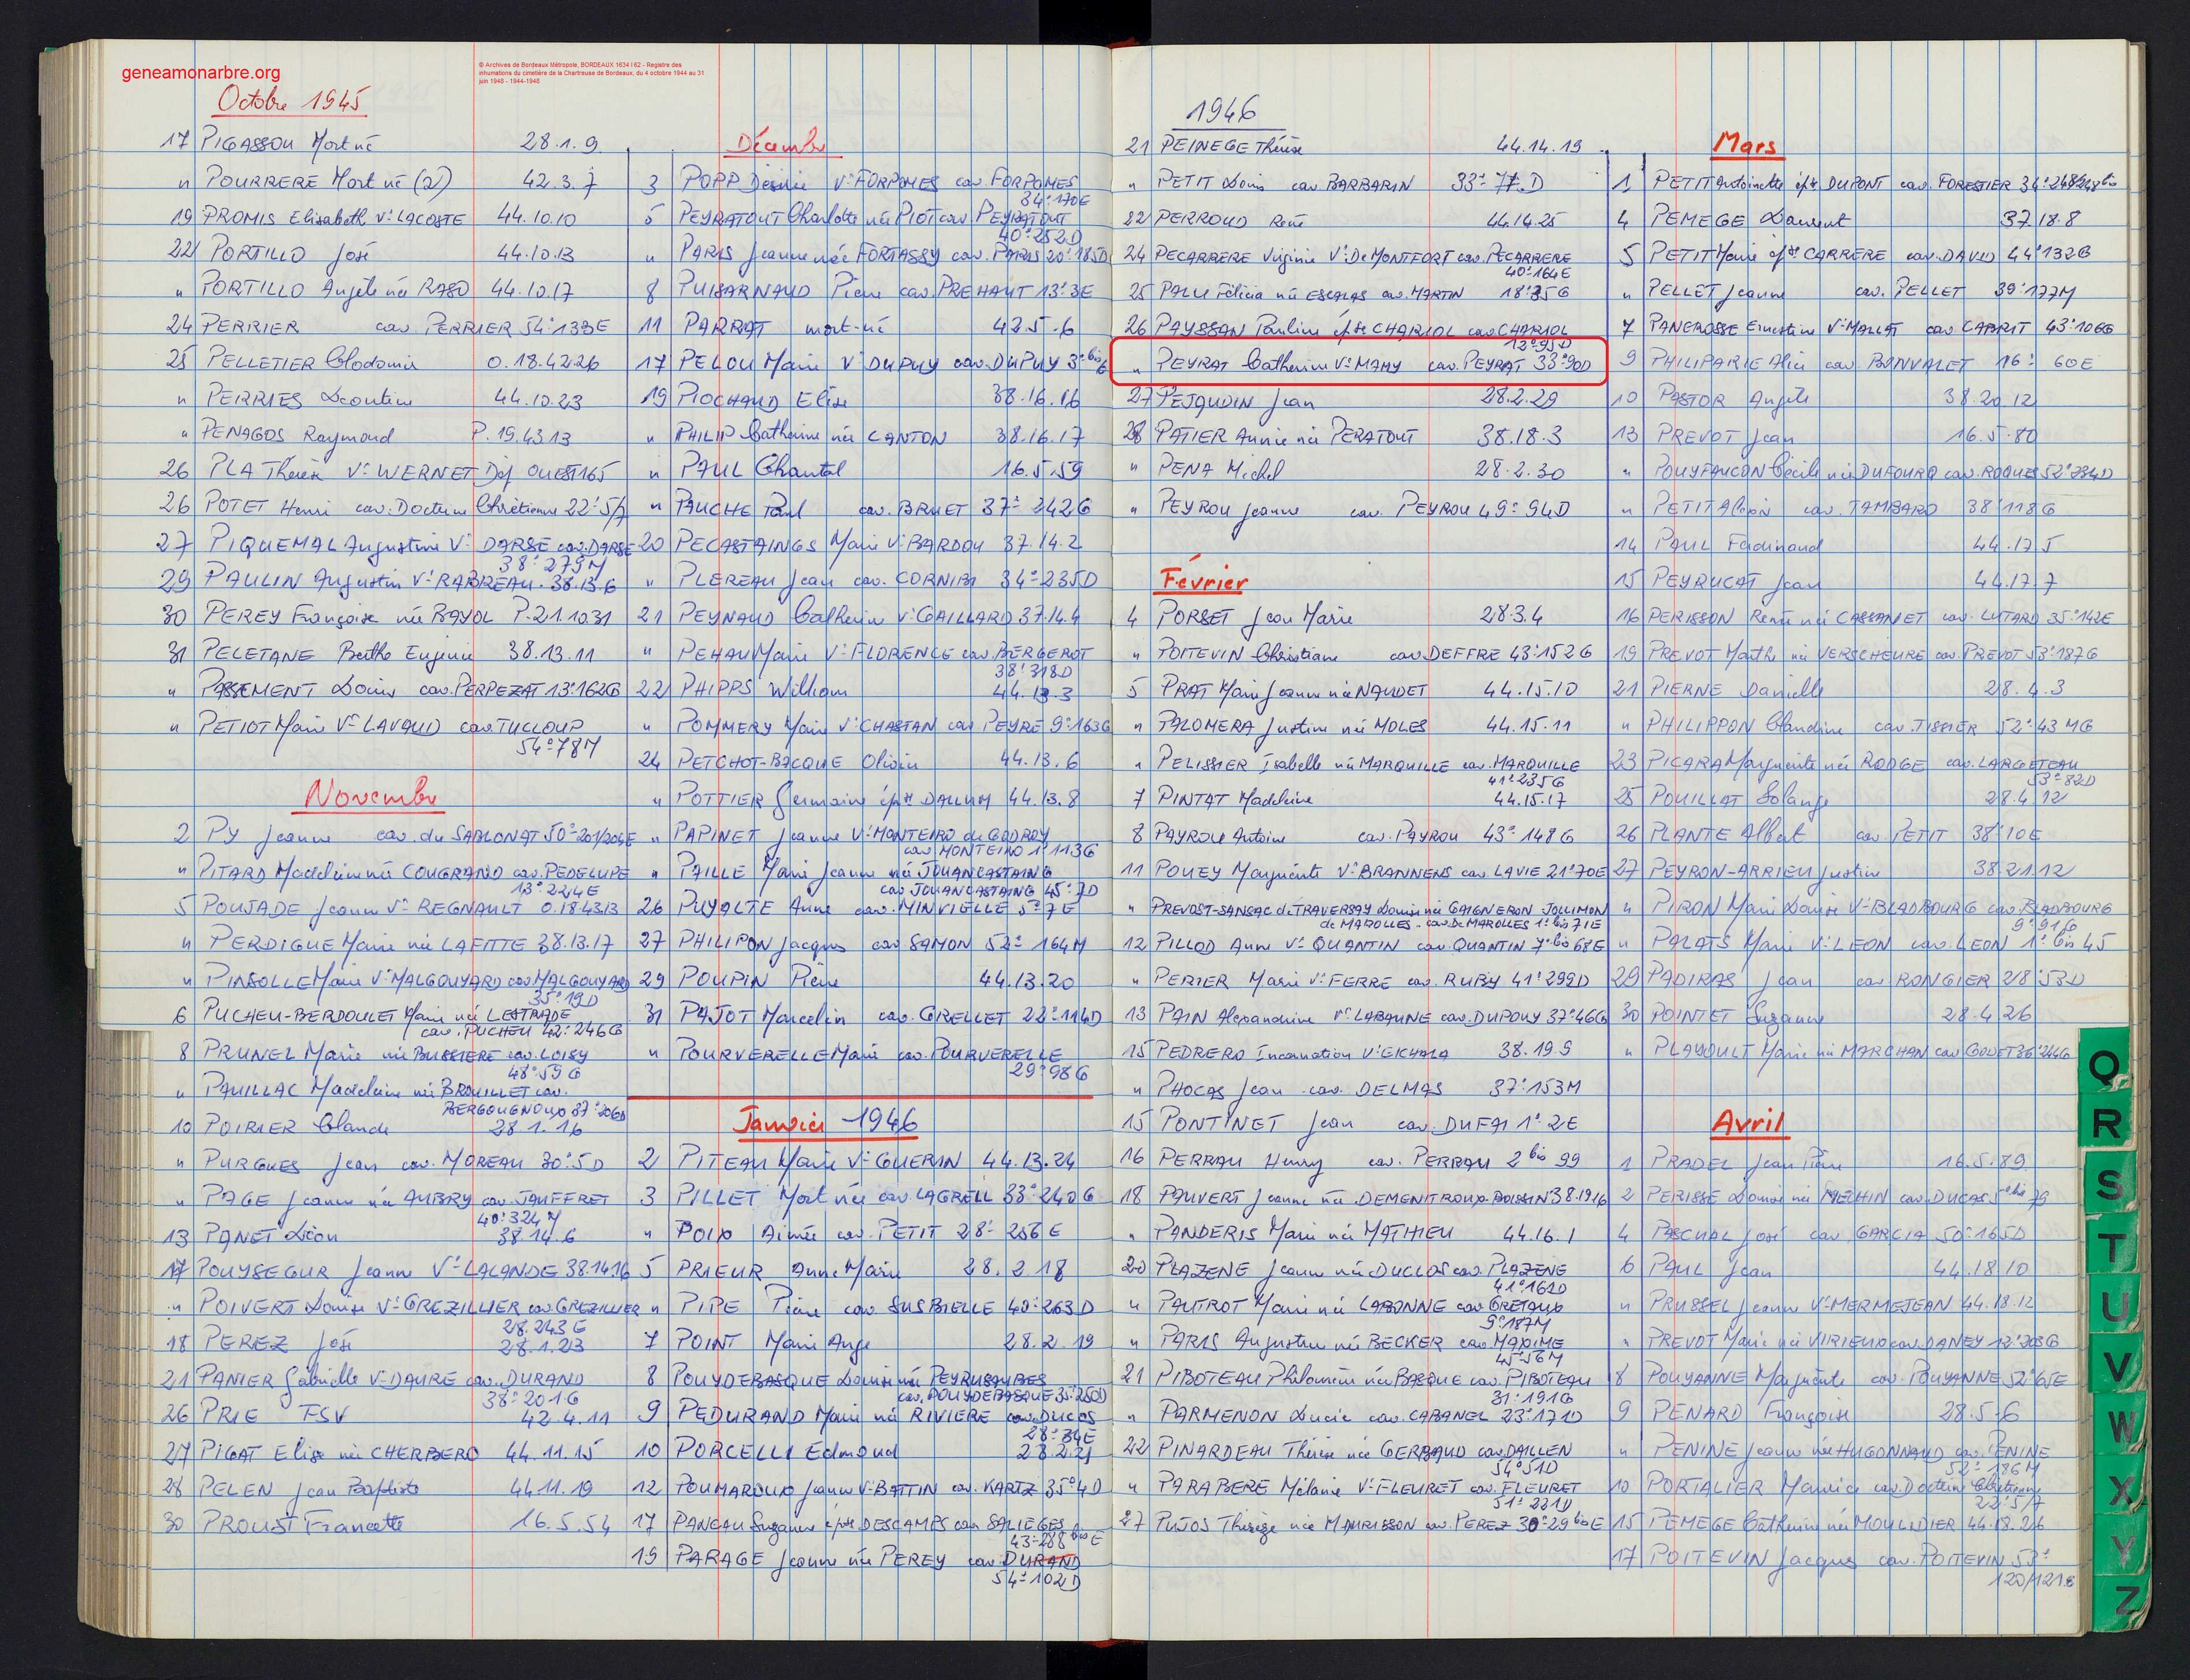 geneamonarbre.org
© Archives de Bordeaux Métropole, BORDEAUX 1634 I 62 - Registre des
inhumations du cimetière de la Chartreuse de Bordeaux, du 4 octobre 1944 au 31
juin 1948 - 1944-1948
Octobre 1945
17 PIGASSOU Mort né 28.1.9
" POURRERE Mort né (2) 42.3.7
19 PROMIS Elisabeth Vᵉ LACOSTE 44.10.10
22 PORTILLO José 44.10.13
" PORTILLO Angèle née RASO 44.10.17
24 PERRIER cav. PERRIER 54ᵉ 133E
25 PELLETIER Clodomir O.18.42.26
" PERRIES Léontine 44.10.23
" PENAGOS Raymond P.19.43.13
26 PLA Thérèse Vᵉ WERNET Dép OUEST 165
26 POTET Henri cav. Docteur Chrétienne 22ᵉ 5/7
27 PIQUEMAL Augustine Vᵉ DARSE cav. DARSE
38ᵉ 279M
29 PAULIN Augustin Vᵉ RABREAU 38.13.6
30 PEREY Françoise née BAYOL P.21.10.31
31 PELETANE Berthe Eugénie 38.13.11
" PASSEMENT Louis cav. PERPEZAT 13ᵉ 162G
" PETIOT Marie Vᵉ LAVAUD cav. TUCLOUP
54ᵉ 78M
Novembre
2 PY Jeanne cav. du SABLONAT 50ᵉ 201/204E
" PITARD Madeleine née COUGRAND cav. PEDELUPE
13ᵉ 224E
5 POUJADE Jeanne Vᵉ REGNAULT O.18.43.13
" PERDIGUE Marie née LAFITTE 38.13.17
" PINSOLLE Marie Vᵉ MALGOUYARD cav MALGOUYARD
35ᵉ 19D
6 PUCHEU-BERDOULET Marie née LESTRADE
cav. PUCHEU 42ᵉ 246G
8 PRUNEL Marie née BUSSIERE cav. LOISY
48ᵉ 59G
" PAUILLAC Madeleine née BROUILLET cav.
BERGOUGNOUX 37ᵉ 206D
10 POIRIER Claude 28.1.16
" PURGUES Jean cav. MOREAU 30ᵉ 5D
" PAGE Jeanne née AUBRY cav. JAUFFRET
40ᵉ 324M
13 PANET Léon 38.14.6
17 POUYSEGUR Jeanne Vᵉ LALANDE 38.14.16
" POIVERT Louise Vᵉ GREZILLIER cav. GREZILLIER
28.243E
18 PEREZ José 28.1.23
21 PANIER Gabrielle Vᵉ DAURE cav. DURAND
38ᵉ 201G
26 PRIE FSV 42.4.11
27 PIGAT Elise née CHERBERO 44.11.15
28 PELEN Jean Baptiste 44.11.19
30 PROUST Francette 16.5.54
Décembre
3 POPP Désirée Vᵉ FORPOMES cav. FORPOMES
34ᵉ 170E
5 PEYRATOUT Charlotte née PIOT cav. PEYRATOUT
40ᵉ 252D
" PARIS Jeanne née FORTASSY cav. PARIS 20ᵉ 185D
8 PUISARNAUD Pierre cav. PREHAUT 13ᵉ 3E
11 PARRAT mort-né 42.5.6
17 PELOU Marie Vᵉ DUPUY cav. DUPUY 3ᵉ bis
19 PIOCHAUD Elise 38.16.16
" PHILIP Catherine née CANTON 38.16.17
" PAUL Chantal 16.5.59
" PAUCHE Paul cav. BRUET 37ᵉ 242G
20 PECASTAINGS Marie Vᵉ BARDOU 37.14.2
" PLEREAU Jean cav. CORNIBI 34ᵉ 235D
21 PEYNAUD Catherine Vᵉ GAILLARD 37.14.4
" PEHAU Marie Vᵉ FLORENCE cav. BERGEROT
38ᵉ 318D
22 PHIPPS William 44.13.3
" POMMERY Marie Vᵉ CHASTAN cav PEYRE 9ᵉ 163G
24 PETCHOT-BACQUE Olivier 44.13.6
" POTTIER Germaine épse DALLUM 44.13.8
" PAPINET Jeanne Vᵉ MONTEIRO de GODROY
cav MONTEIRO 1ᵉ 113G
" PAILLE Marie Jeanne née JOUANCASTAING
cav JOUANCASTAING 45ᵉ 7D
26 PUYALTE Anne cav. MINVIELLE 5ᵉ 7E
27 PHILIPON Jacques cav SAMON 52ᵉ 164M
29 POUPIN Pierre 44.13.20
31 PAJOT Marcelin cav. GRELLET 22ᵉ 114D
" POURVERELLE Marie cav. POURVERELLE
29ᵉ 98G
Janvier 1946
2 PITEAU Marie Vᵉ GUERIN 44.13.24
3 PILLET Mort née cav. LAGRELL 33ᵉ 240G
" POIX Aimée cav. PETIT 28ᵉ 256E
5 PRIEUR Anne Marie 28.2.18
" PIPE Pierre cav SUSBIELLE 40ᵉ 263D
7 POINT Marie Ange 28.2.19
8 POUYDEBASQUE Louise née PEYRUSAUBES
cav. POUYDEBASQUE 35ᵉ 250D
9 PEDURAND Marie née RIVIERE cav. DUCOS
28ᵉ 34E
10 PORCELLI Edmond 28.2.21
12 POUMAROUX Jeanne Vᵉ BATTIN cav. KARTZ 35ᵉ 4D
17 PANCAU Suzanne épse DESCAMPS cav SALIEGES
43ᵉ 288 bis E
19 PARAGE Jeanne née PEREY cav. DURAND
54ᵉ 102D
1946
21 PEINEGE Thérèse 44.14.19
" PETIT Louis cav BARBARIN 33ᵉ 77.D
22 PERROUD René 44.14.25
24 PECARRERE Virginie Vᵉ De MONTFORT cav. PECARRERE
40ᵉ 164E
25 PALU Félicia née ESCALAS cav. MARTIN 18ᵉ 35G
26 PAYSSAN Pauline épse CHARIOL cav CHARIOL
13ᵉ 95D
" PEYRAT Catherine Vᵉ MAMY cav. PEYRAT 33ᵉ 90D
27 PEJAUDIN Jean 28.2.29
28 PATIER Annie née PERATOUT 38.18.3
" PENA Michel 28.2.30
" PEYROU Jeanne cav. PEYROU 49ᵉ 94D
Février
4 PORSET Jean Marie 28.3.4
" POITEVIN Christiane cav DEFFRE 43ᵉ 152G
5 PRAT Marie Jeanne née NAUDET 44.15.10
" PALOMERA Justine née MOLES 44.15.11
" PELISSIER Isabelle née MARQUILLE cav. MARQUILLE
41ᵉ 235G
7 PINTAT Madeleine 44.15.17
8 PAYROU Antoine cav. PAYROU 43ᵉ 148G
11 POUEY Marguerite Vᵉ BRANNENS cav LAVIE 21ᵉ 70E
" PREVOST-SANSAC de TRAVERSAY Louise née GAIGNERON JOLLIMON
de MAROLLES - cav De MAROLLES 1ᵉ bis 71E
12 PILLOD Anne Vᵉ QUANTIN cav. QUANTIN 7ᵉ bis 68E
" PERIER Marie Vᵉ FERRE cav. RUBY 41ᵉ 299D
13 PAIN Alexandrine Vᵉ LABAUNE cav. DUPOUY 37ᵉ 46G
15 PEDRERO Incarnation Vᵉ EICHALA 38.19.9
" PHOCAS Jean cav. DELMAS 37ᵉ 153M
15 PONTINET Jean cav. DUFAI 1ᵉ 2E
16 PERRAU Henry cav. PERRAU 2 bis 99
18 PAUVERT Jeanne née DEMENITROUX-BOISSIN 38.19.16
" PANDERIS Marie née MATHIEU 44.16.1
20 PLAZENE Jeanne née DUCLOS cav. PLAZENE
41ᵉ 161D
" PAUTROT Marie née LABONNE cav GRETAUX
9ᵉ 187M
" PARIS Augustine née BECKER cav. MAXIME
45ᵉ 56M
21 PIBOTEAU Philomène née BASQUE cav. PIBOTEAU
31ᵉ 191G
" PARMENON Lucie cav. CABANEL 23ᵉ 171D
22 PINARDEAU Thérèse née GERBAUD cav DAILLEN
54ᵉ 51D
" PARABERE Mélanie Vᵉ FLEURET cav. FLEURET
51ᵉ 221D
27 PUJOS Thérèse née MAURISSON cav. PEREZ 30ᵉ 29 bis E
Mars
1 PETIT Antoinette épse DUPONT cav. FORESTIER 34ᵉ 248/248 bis
4 PEMEGE Laurent 37.18.8
5 PETIT Marie épse CARRERE cav. DAVID 44ᵉ 132G
" PELLET Jeanne cav. PELLET 39ᵉ 177M
7 PANCROSSE Ernestine Vᵉ MALLAT cav CABRIT 43ᵉ 106G
9 PHILIPARIE Alice cav BONVALET 16ᵉ 60E
10 PASTOR Angèle 38.20.12
13 PREVOT Jean 16.5.80
" POUYFAUCON Cécile née DUFOURQ cav. ROQUES 52ᵉ 234D
" PETIT Albin cav. TAMBARO 38ᵉ 118G
14 PAUL Ferdinand 44.17.5
15 PEYRUCAT Jean 44.17.7
16 PERISSON Renée née CASSANET cav. LUTARD 35ᵉ 142E
19 PREVOT Marthe née VERSCHEURE cav. PREVOT 53ᵉ 187G
21 PIERNE Danielle 28.4.3
" PHILIPPON Claudine cav. TISSIER 52ᵉ 43MG
23 PICARA Marguerite née RODGE cav. LARGETEAU
53ᵉ 82D
25 POUILLAT Solange 28.4.12
26 PLANTE Albert cav. PETIT 38ᵉ 10E
27 PEYRON-ARRIEU Justin 38.21.12
" PIRON Marie Louise Vᵉ BLADBOURG cav. BLADBOURG
9ᵉ 91G
" PALATS Marie Vᵉ LEON cav. LEON 1ᵉ bis 45
29 PADIRAS Jean cav RONGIER 28ᵉ 53D
30 POINTET Suzanne 28.4.26
" PLAYOULT Marie née MARCHAN cav GODET 36ᵉ 244G
Avril
1 PRADEL Jean Pierre 16.5.89
2 PERISSE Louise née MELHIN cav. DUCAS 5ᵉ bis 79
4 PASCUAL José cav GARCIA 50ᵉ 165D
6 PAUL Jean 44.18.10
" PRUSSEL Jeanne Vᵉ MERMETEAN 44.18.12
" PREVOT Marie née VIRIEUX cav. DANEY 12ᵉ 203G
8 POUYANNE Marguerite cav. POUYANNE 52ᵉ 65E
9 PENARD Françoise 28.5.6
" PENINE Jeanne née HUGONNAUD cav. PENINE
52ᵉ 186M
10 PORTALIER Maurice cav. Docteur Chrétienne
22ᵉ 5/7
15 PEMEGE Catherine née MOULIDIER 44.18.26
17 POITEVIN Jacques cav. POITEVIN 53ᵉ
120/121E
Q
R
S
T
U
V
W
X
Y
Z